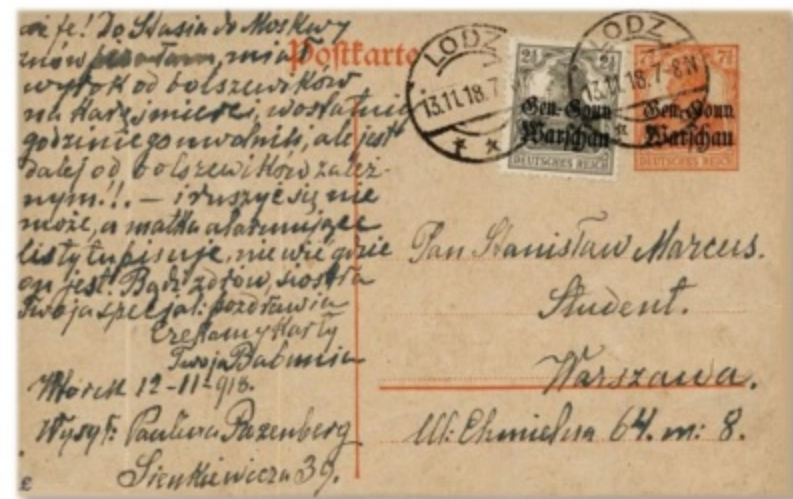 się je! Do Stasia do Moskwy
znów, miał
wyrok od bolszewików
na karę śmierci, w ostatniej
godzinie go uwolnili, ale jest
dalej od bolszewików zależ-
nym!! — i ruszyć się nie
może, a matka alarmujące
listy tu pisuje, nie wie gdzie
on jest. Bądź zdrów, siostra
Twoja specjal: pozdrawia
Czekamy Karty
Twoja Babunia
Wtorek 12-11-918.
Wysył: Paulina Pazenberg
Sienkiewicza 39.
Postkarte
LODZ
13.11.18.7
2½ 2½
Gen.-Gouv.
Warschau
DEUTSCHES REICH
LODZ
13.11.18.7-8N
7½ 7½
Gen.-Gouv.
Warschau
DEUTSCHES REICH
Pan Stanisław Marcus.
Student.
Warszawa.
Ul: Chmielna 64. m: 8.